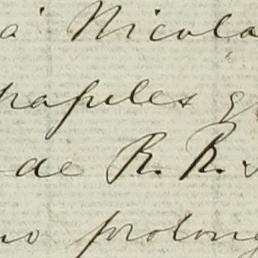 a' Nicola
papeles q
de R. R. s
no prolong